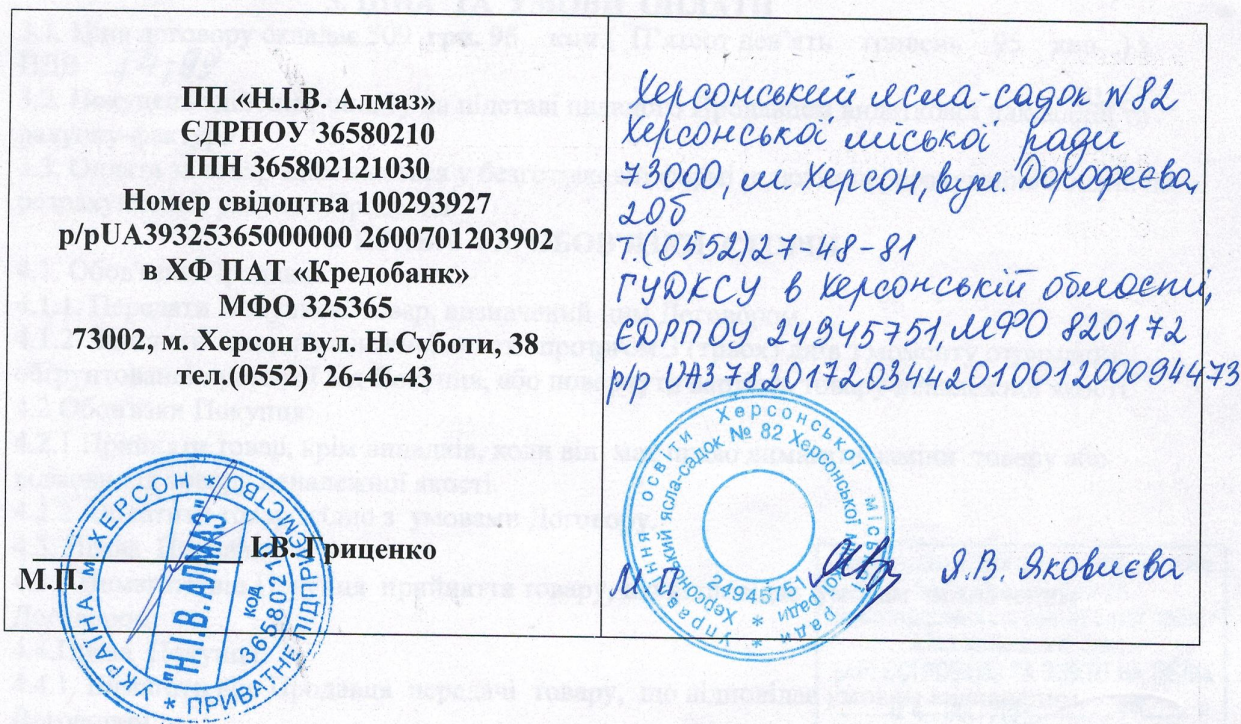 ПП «Н.І.В. Алмаз»
ЄДРПОУ 36580210
ІПН 365802121030
Номер свідоцтва 100293927
р/рUA39325365000000 2600701203902
в ХФ ПАТ «Кредобанк»
МФО 325365
73002, м. Херсон вул. Н.Суботи, 38
тел.(0552) 26-46-43
І.В. Гриценко
М.П.
УКРАЇНА м.ХЕРСОН * ПРИВАТНЕ ПІДПРИЄМСТВО *
"Н.І.В.АЛМАЗ"
код
36580210
Херсонський ясла-садок №82
Херсонської міської ради
73000, м. Херсон, вул. Дорофєєва,
20б
т.(0552)27-48-81
ГУДКСУ в Херсонській області,
ЄДРПОУ 24945751, МФО 820172
р/р UA378201720344201001200094473
Управління освіти Херсонської міської ради *
Херсонський ясла-садок № 82 Херсонської міської ради *
24945751
М.П. Я.В. Яковлєва